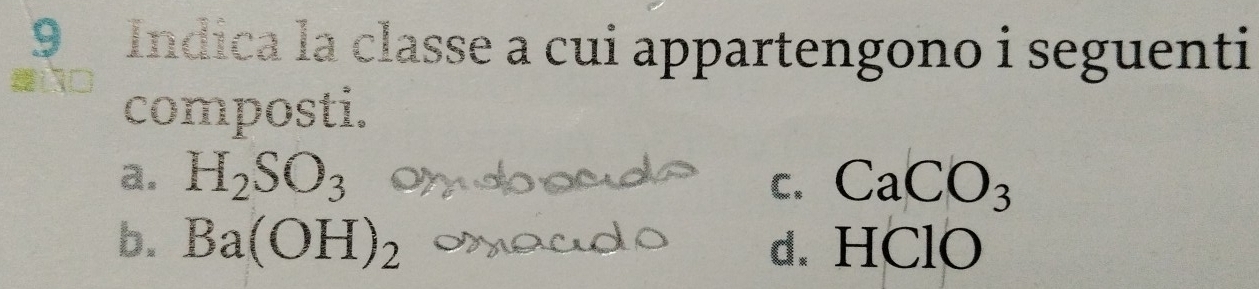 9 Indica la classe a cui appartengono i seguenti
composti.
a. H₂SO₃ c. CaCO₃
b. Ba(OH)₂ ossiacido d. HClO